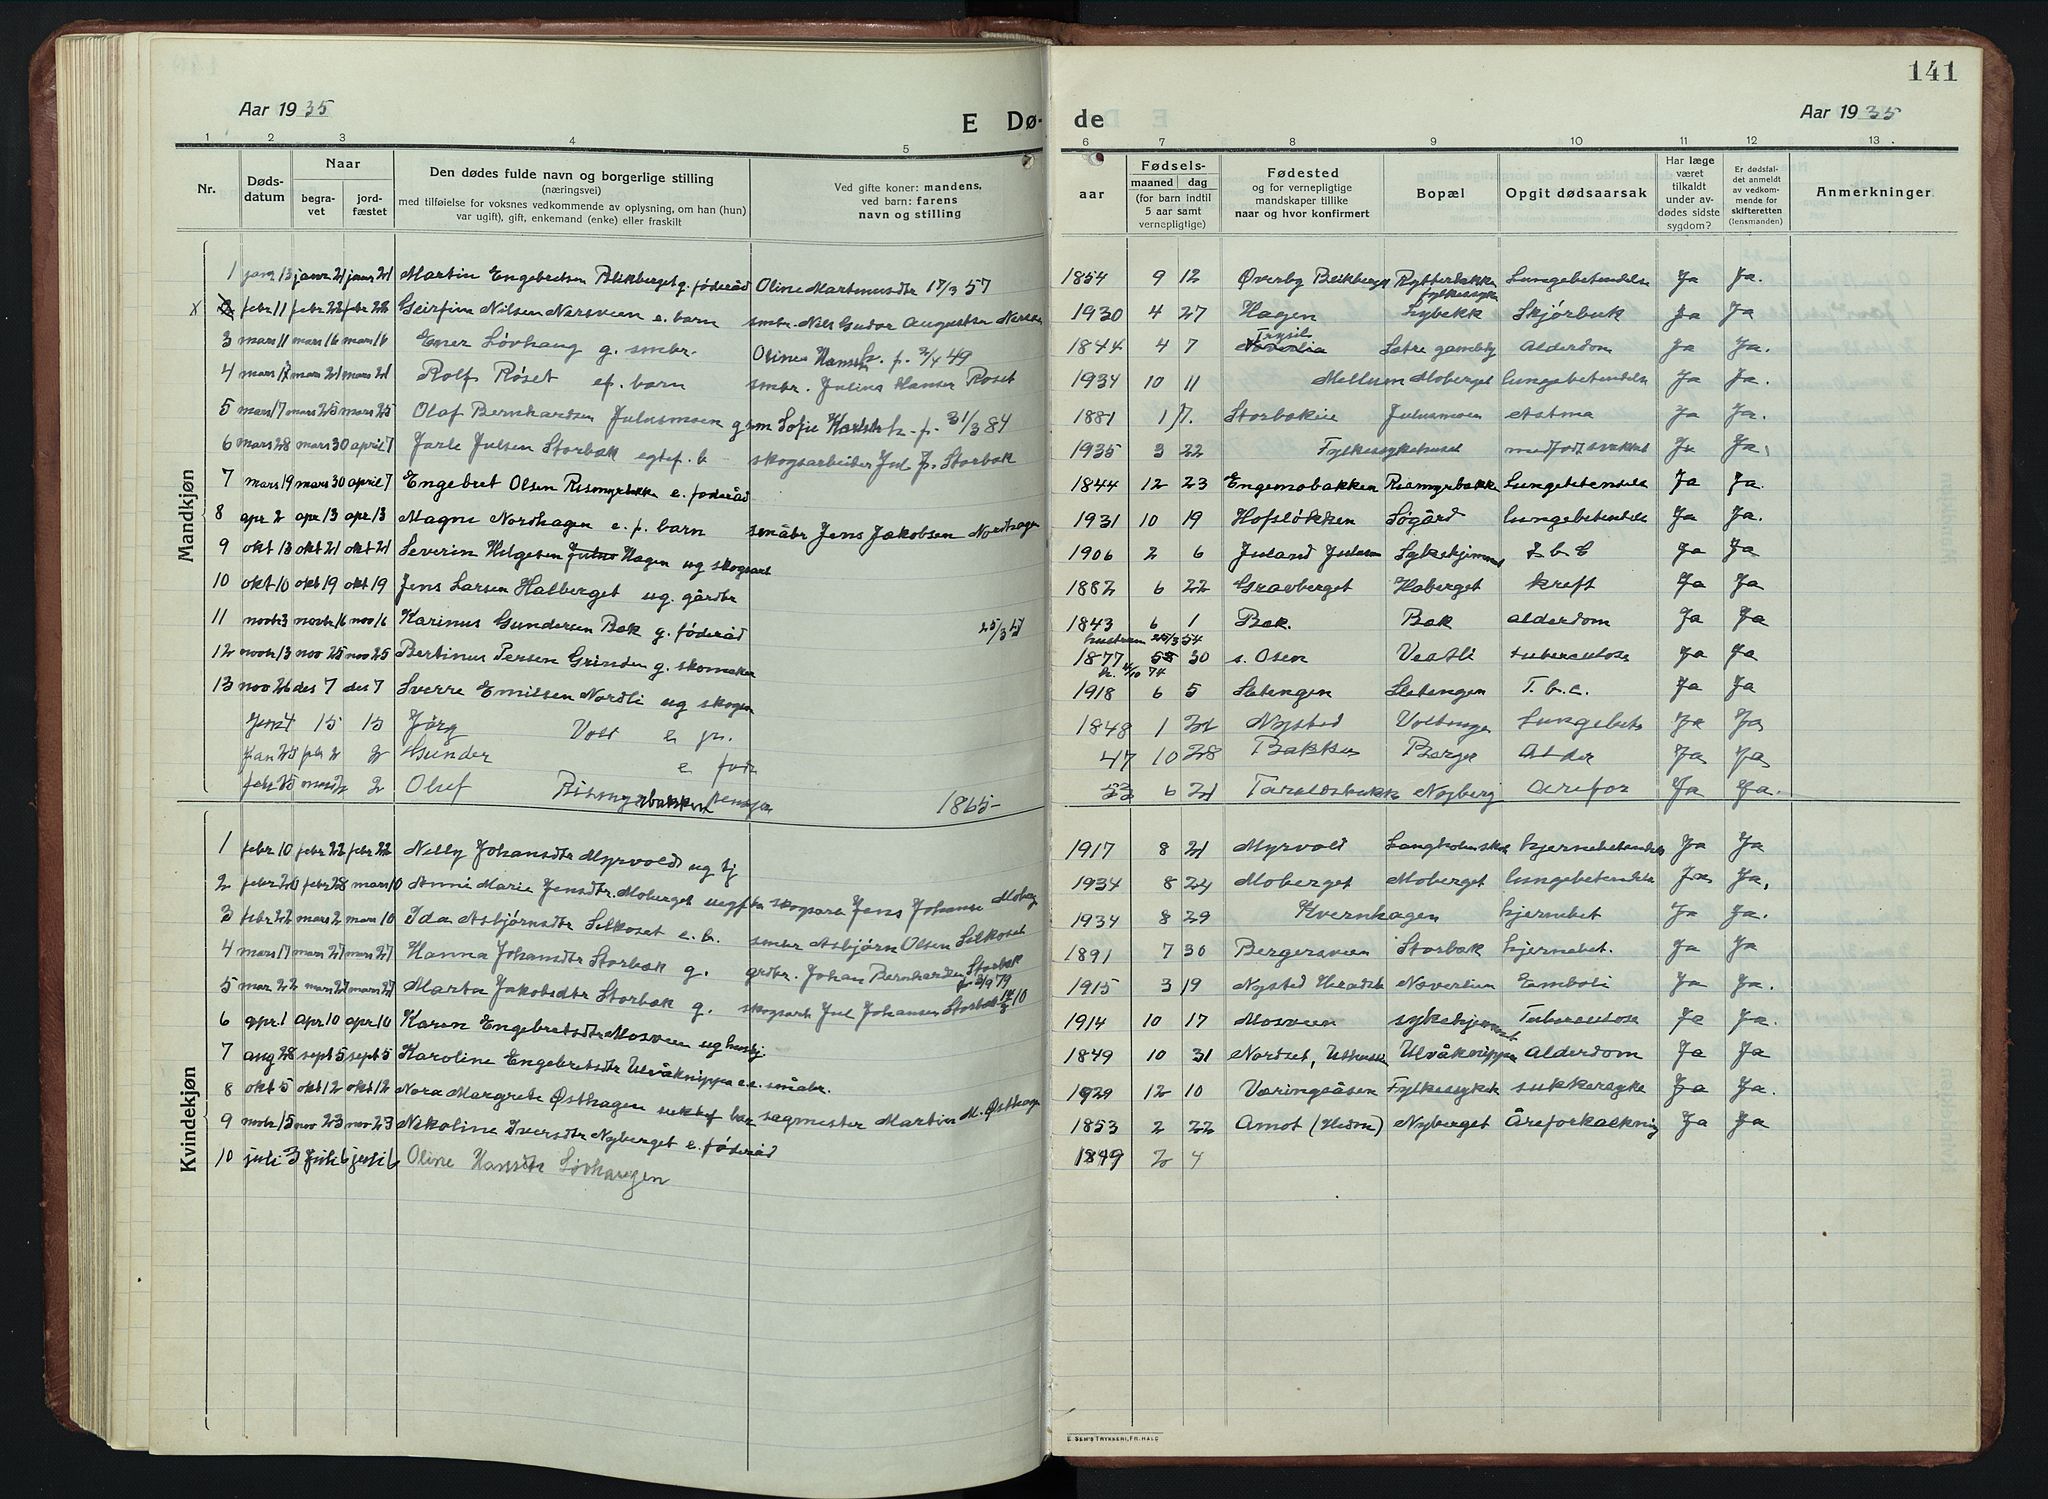 141
Aar 1935
E Dø-
de
Aar 1935
1 2 3 4 5 6 7 8 9 10 11 12 13
Nr.
Døds-
datum
Naar
begra-
vet
jord-
fæstet
Den dødes fulde navn og borgerlige stilling
(næringsvei)
med tilføielse for voksnes vedkommende av oplysning, om han (hun)
var ugift), gift, enkemand (enke) eller fraskilt
Ved gifte koner: mandens,
ved barn: farens
navn og stilling
aar
Fødsels-
maaned dag
(for barn indtil
5 aar samt
vernepligtige)
Fødested
og for vernepligtige
mandskaper tillike
naar og hvor konfirmert
Bopæl
Opgit dødsaarsak
Har læge
været
tilkaldt
under av-
dødes sidste
sygdom?
Er dødsfal-
det anmeldt
av vedkom-
mende for
skifteretten
(lensmanden)
Anmerkninger
Mandkjøn
1 13 21 21 Martin Engebretsen Blikberget g. føderåd Oline Martinusdtr 17/3 57 1854 9 12 Øverby Rytterbakken Lungebetendelse Ja Ja.
X febr 11 febr 22 febr 28 Geirfinn Nilsen Nersveen e. barn smbr. Nils Gudor Augustsen 1930 4 27 Hagen fylkessyk Lybekk Ja Ja
3 mars 11 mars 16 mars 16 Ener Løvhaug g. smbr. Oline Hansdtr. f. 2/4 49 1844 4 7 Trysil Alderdom Ja Ja.
4 mars 17 mars 21 mars 21 Rolf Røset ef. barn smbr. Julius Hansen Røset 1934 10 11 Mellum Moberget lungebetendelse Ja Ja.
5 mars 17 mars 25 mars 25 Olaf Bernhardsen Julusmoen Sofie f. 31/3 84 1881 1 7. Storbakken Julusmoen Astma Ja Ja.
6 mars 28 mars 30 april 7 Jarle Julsen Storbak egtef. b skogsarbeider Jul J. Storbak 1935 3 22 Fylkessykehuset medfødt svakhet Ja Ja.
7 mars 19 mars 30 april 7 Engebret Olsen Rismyrbakken e. føderåd 1844 12 23 Engemobakken Rismyrbakken Lungebetendelse Ja Ja.
8 apr 2 apr 13 apr 13 Magne Nordhagen e. f. barn småbr Jens Jakobsen Nordhagen 1931 10 19 Hofsløkken Søgård lungebetendelse Ja Ja.
9 okt 13 okt 21 okt 21 Severin Helgesen Hagen ug skogsarb 1906 2 6 Sykehjemmet t b c Ja Ja
10 okt 10 okt 19 okt 19 Jens Larsen Halberget ug. gårdbr 1882 6 22 Gravberget Haberget kreft Ja Ja
11 novbr 3 novbr 16 nov 16 Karinus Gundersen Bak g. føderåd 25/3 54 1843 6 1 Bak. Bak Alderdom Ja Ja
hustruen 25/3 54
12 novbr 13 nov 25 nov 25 Bertinus Persen Grinden g. skomaker 1877 5 30 s. Osen Vestli tuberculose Ja Ja
13 nov 26 des 7 des 7 Sverre Emilsen Nordli ug skogsa 1918 6 5 Sletengen Sletengen T. b. c. Ja Ja
15 15 Jørg Voll e 1848 1 31 Nysted Lungebet Ja Ja
jan 25 febr 2 2 Gunder e fødr 47 10 28 Bakken Berger Alder Ja Ja
febr 25 mars 2 2 Oluf Rismyrbakken 1865- 53 6 21 Nyberg Arefor Ja Ja.
Kvindekjøn
1 febr 10 febr 22 febr 22 Nelly Johansdtr Myrvold ug tj 1917 8 21 Myrvold hjernebetendelse Ja Ja
2 febr 20 febr 28 mars 10 Anne Marie Jensdtr Moberget skogsarb Jens Johansen Moberg 1934 8 24 Moberget Moberget lungebetendelse Ja Ja,
3 febr 22 mars 2 mars 10 Ida Asbjørnsdtr Silkoset e. b. smbr Asbjørn Olsen Silkoset 1934 8 29 Kvernhagen hjernebet Ja Ja.
4 mars 17 mars 27 mars 27 Hanna Johansdtr Storbak g. grdbr. Johan Bernhardsen Storbak 1891 7 30 Bergersveen Storbak hjernebet. Ja Ja
5 mar 22 mars 27 mars 27 Marta Jakobsdtr Storbak g. skogsarb Jul Johansen Storbak 1915 3 19 Nysted Emboli Ja Ja.
6 apr 1 apr 10 apr 10 Karen Engebretsdtr Mosveen ug hushj. 1914 10 17 Mosveen sykehjemmet Tuberculose Ja Ja.
7 aug 28 sept 5 sept 5 Karoline Engebretsdtr Ulvåknippa e. småbr. 1849 10 31 Nordset, Ulvåknippa Alderdom Ja Ja
8 okt 5 okt 12 okt 12 Nora Margrete Østhagen sagmester Martin M. Østhagen 1929 12 10 Væringsåsen Fylkessykeh sukkersyke Ja Ja
9 novbr 15 nov 23 nov 23 Nikoline Iversdtr Nyberget e. føderåd 1853 2 22 Amot (Hedm) Nyberget Åreforkalkning Ja Ja
10 juli 3 juli 6 juli 6 Oline Hansdtr Løvhaugen 1849 2 4
E. SEM'S TRYKKERI, FR.HALD